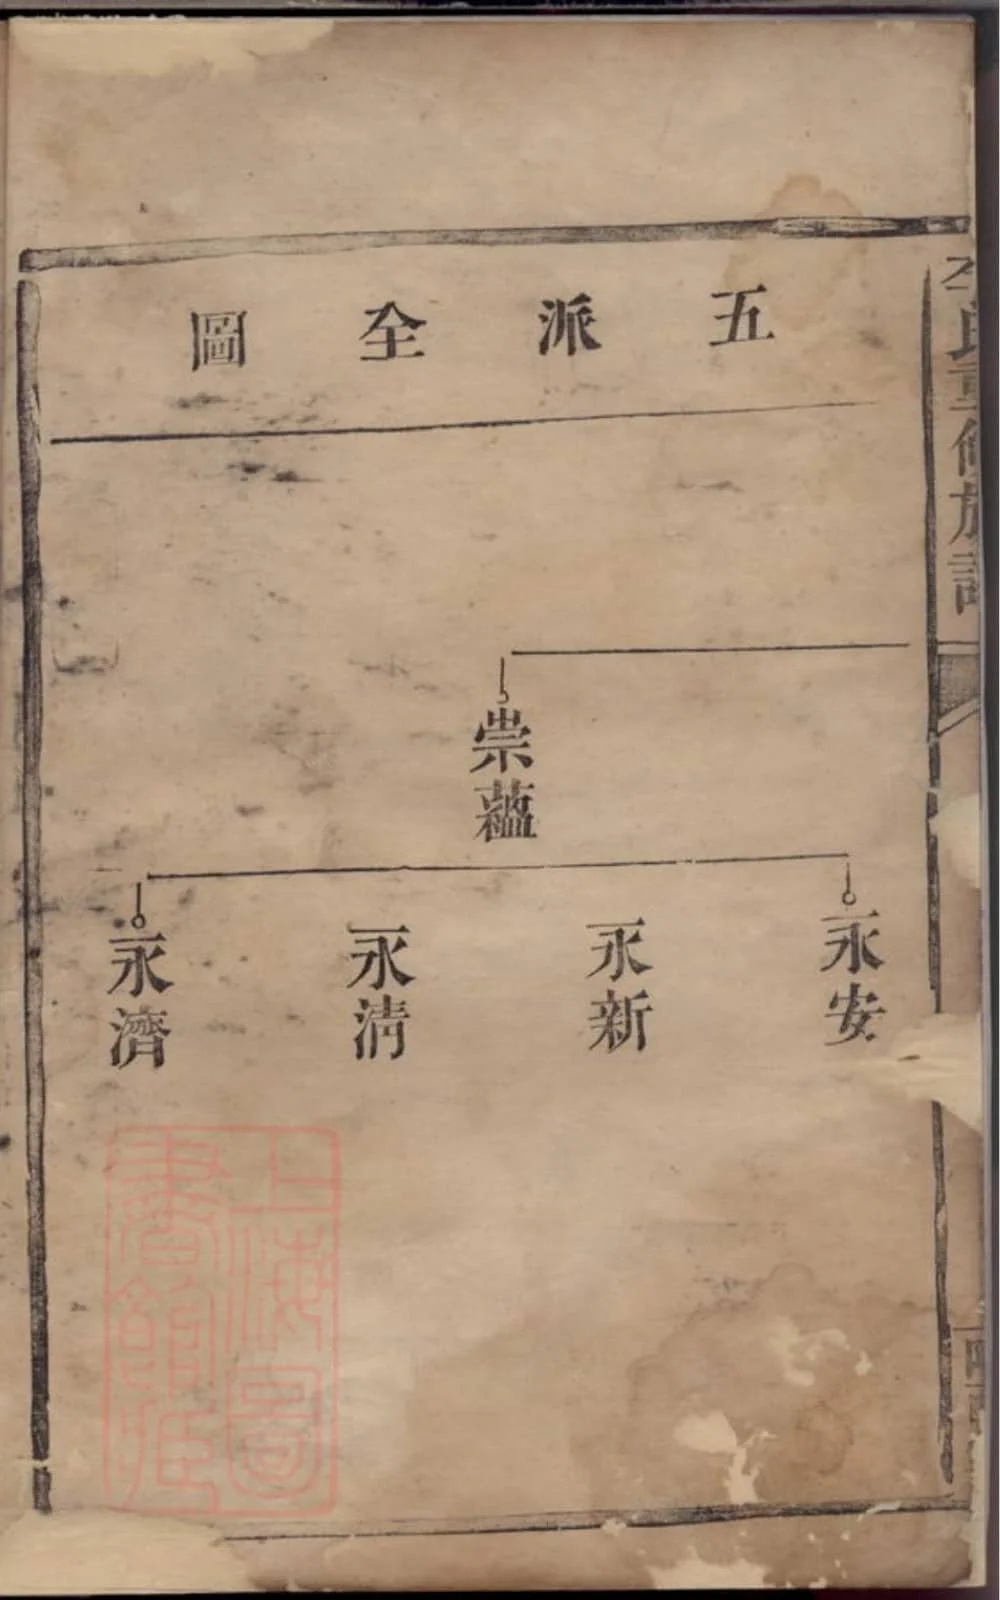 五派全圖
崇蘊
永安
永新
永清
永濟
氏重修族譜
上海圖
書館藏